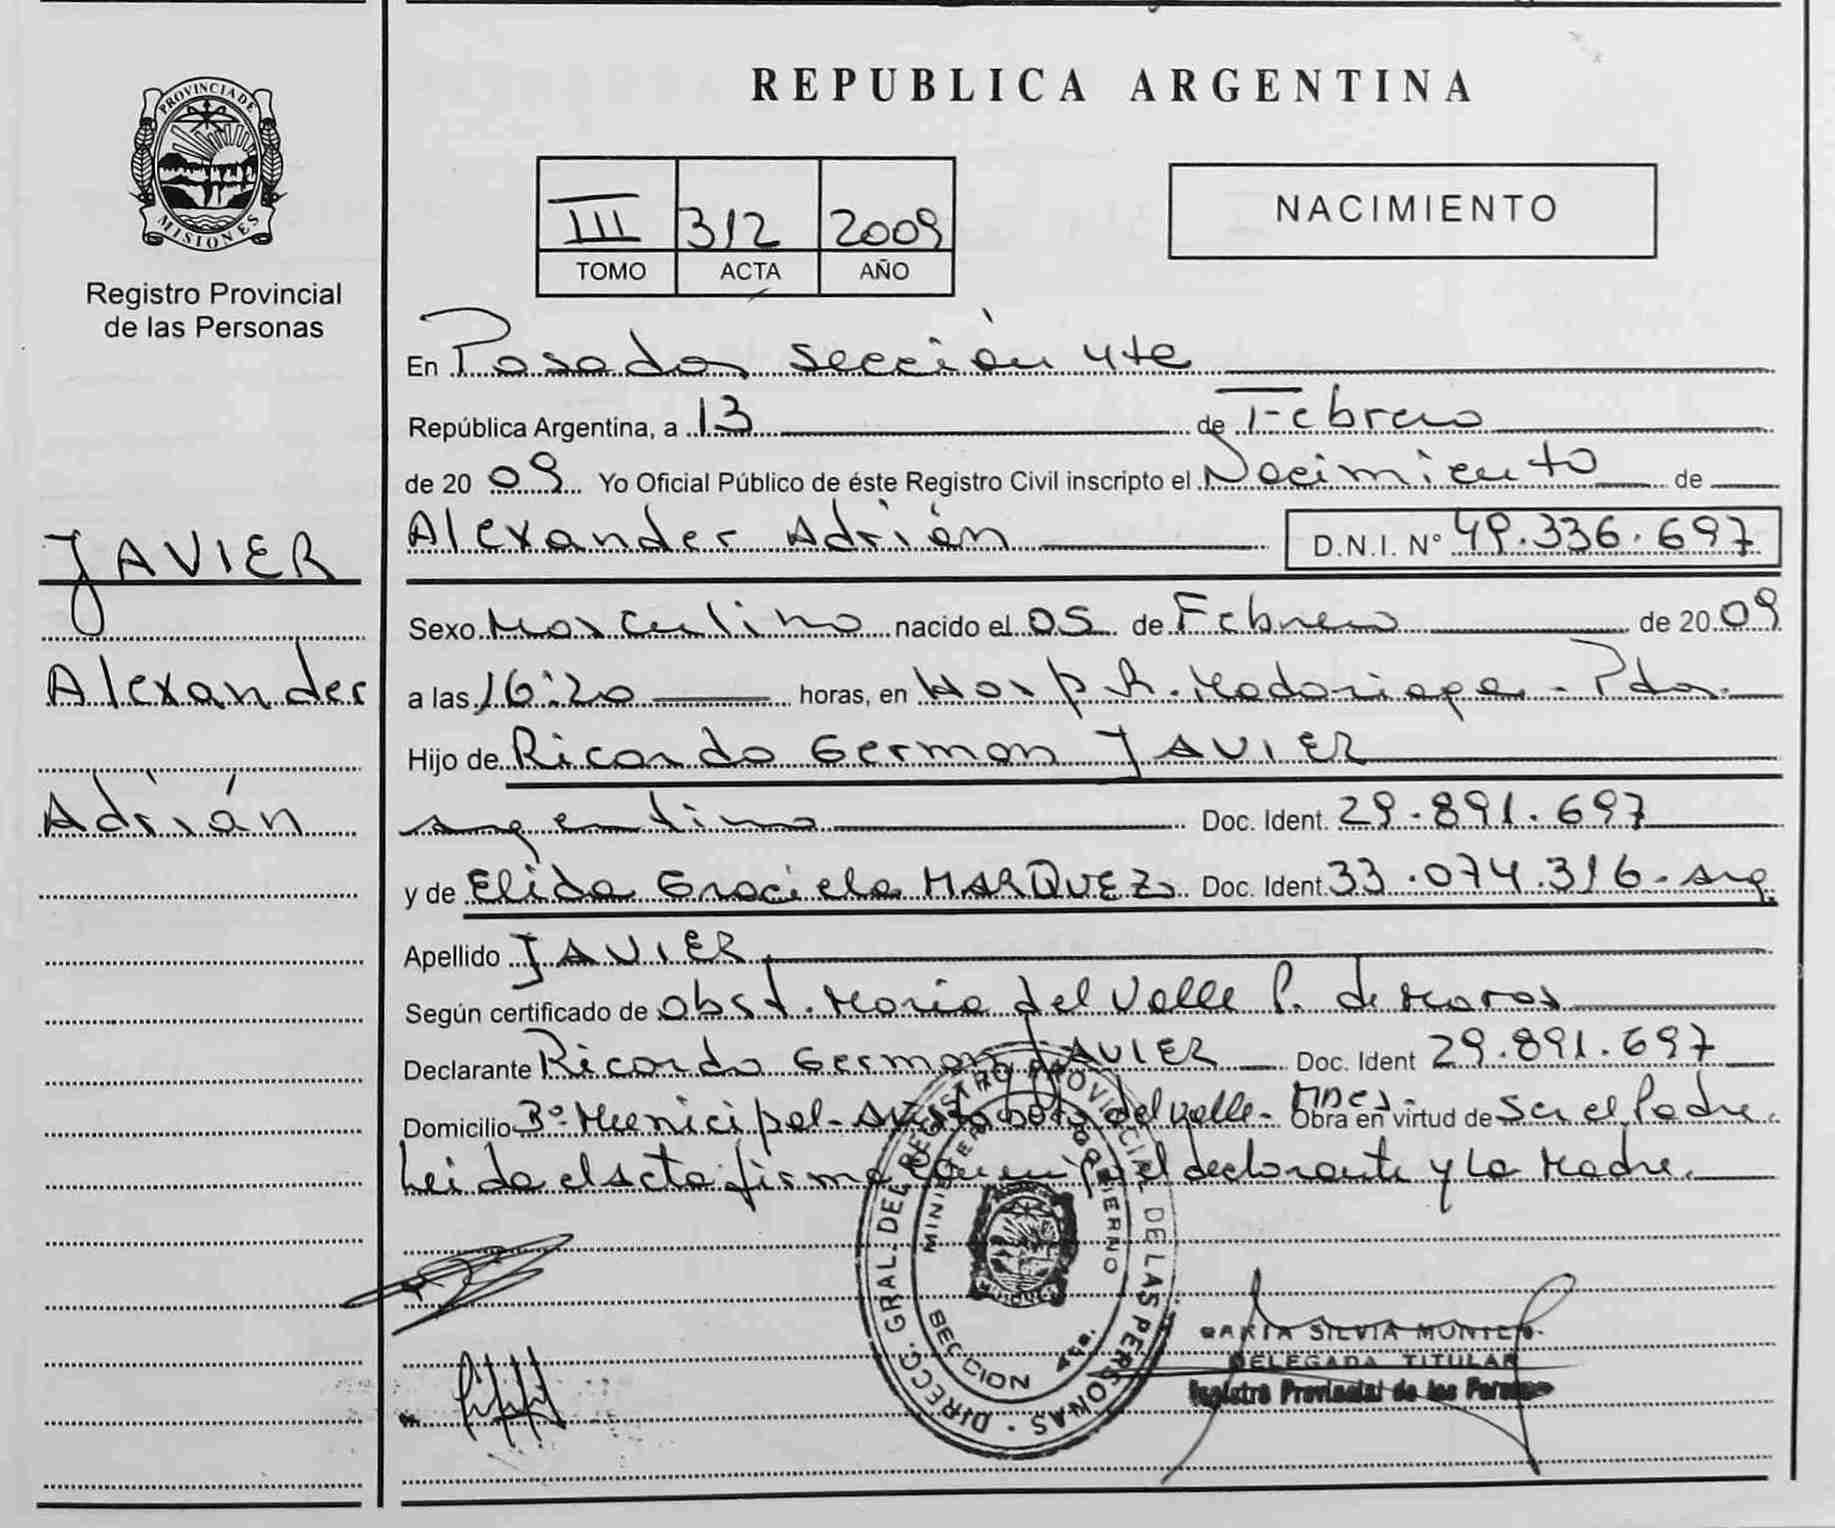 PROVINCIA DE
MISIONES
Registro Provincial
de las Personas
JAVIER
Alexander
Adrián
REPUBLICA ARGENTINA
III 312 2009
TOMO ACTA AÑO
NACIMIENTO
En Posadas sección 4te
República Argentina, a 13 de Febrero
de 20 09 Yo Oficial Público de éste Registro Civil inscripto el Nacimiento de
Alexander Adrián D.N.I. N° 49.336.697
Sexo Masculino nacido el 05 de Febrero de 20 09
a las 16:20 horas, en Hosp. R. Madariaga - Pdas.
Hijo de Ricardo German JAVIER
argentino Doc. Ident. 29.891.697
y de Elida Graciela MARQUEZ Doc. Ident 33.074.316 - arg.
Apellido JAVIER
Según certificado de obst. Maria del Valle P. de
Declarante Ricardo German JAVIER Doc. Ident 29.891.697
Domicilio 3° Municipal - del Valle - Mnes. Obra en virtud de ser el Padre.
Leida el acta firma el declarante y la Madre.
DIRECC. GRAL. DEL REGISTRO PROVINCIAL DE LAS PERSONAS
MINISTERIO GOBIERNO
SECCION 4ta.
MARIA SILVIA
DELEGADA TITULAR
Registro Provincial de las Personas